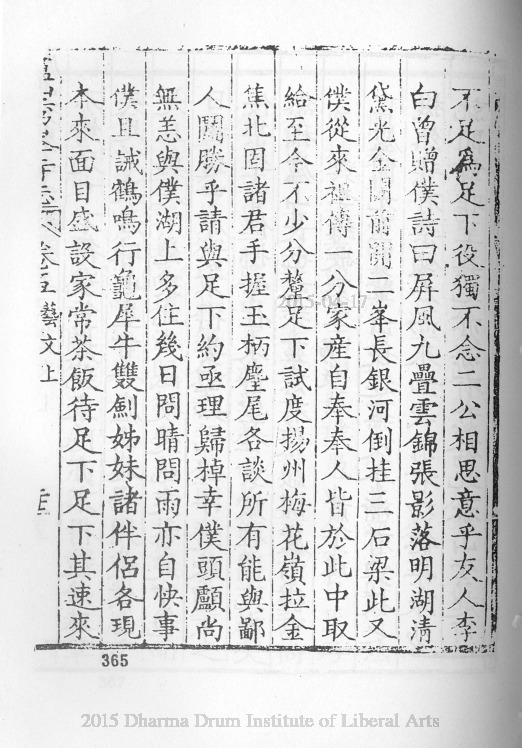 不足為足下役獨不念二公相思意乎友人李
白曾贈僕詩曰屏風九疊雲錦張影落明湖清
黛光金闕前開二峯長銀河倒挂三石梁此又
僕從來祖傳一分家產自奉奉人皆於此中取
給至今不少分釐足下試度揚州梅花嶺拉金
焦北固諸君手握玉柄麈尾各談所有能與鄙
人鬪勝乎請與足下約亟理歸棹幸僕頭顱尚
無恙與僕湖上多住幾日問晴問雨亦自快事
僕且誡鶴鳴行龜犀牛雙劍姊妹諸伴侶各現
本來面目盛設家常茶飯待足下足下其速來
卷五藝文上
365
2015-04-17
2015 Dharma Drum Institute of Liberal Arts